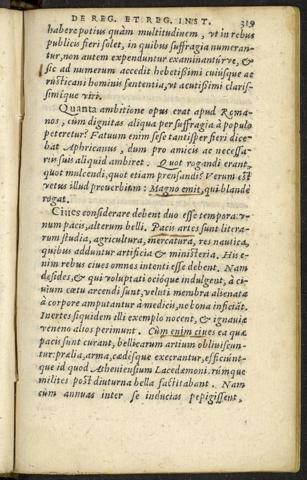 DE REG. ET REG. INST. 319
habere potius quàm multitudinem, vt in rebus
publicis fieri solet, in quibus suffragia numeran-
tur, non autem expenduntur examinanturve, &
sic ad numerum accedit hebetißimi cuiusque ac
rusticani hominis sententia, vt acutißimi claris-
simique viri.
Quanta ambitione opus erat apud Roma-
nos, cùm dignitas aliqua per suffragia à populo
peteretur? Fatuum enim sese tantisper fieri dice-
bat Aphricanus, dum pro amicis ac necessa-
riis suis aliquid ambiret. Quot rogandi erant,
quot mulcendi, quot etiam prensandi? Verum est
vetus illud prouerbium: Magno emit, qui blandè
rogat.
Ciues considerare debent duo esse tempora: v-
num pacis, alterum belli. Pacis artes sunt litera-
rum studia, agricultura, mercatura, res nautica,
quibus adduntur artificia & ministeria. His e-
nim rebus ciues omnes intenti esse debent. Nam
desides, & qui voluptati ocióque indulgent, à ci-
uium cœtu arcendi sunt, veluti membra alienata
à corpore amputantur à medicis, ne bona inficiāt.
Inertes siquidem illi exemplo nocent, & ignauiæ
veneno alios perimunt. Cùm enim ciues ea quæ
pacis sunt curant, bellicarum artium obliuiscun-
tur: prælia, arma, cædésque execrantur, efficiúnt-
que id quod Atheniensium Lacedæmoni. rúmque
milites post diuturna bella factitabant. Nam
cùm annuas inter se inducias pepigissent,